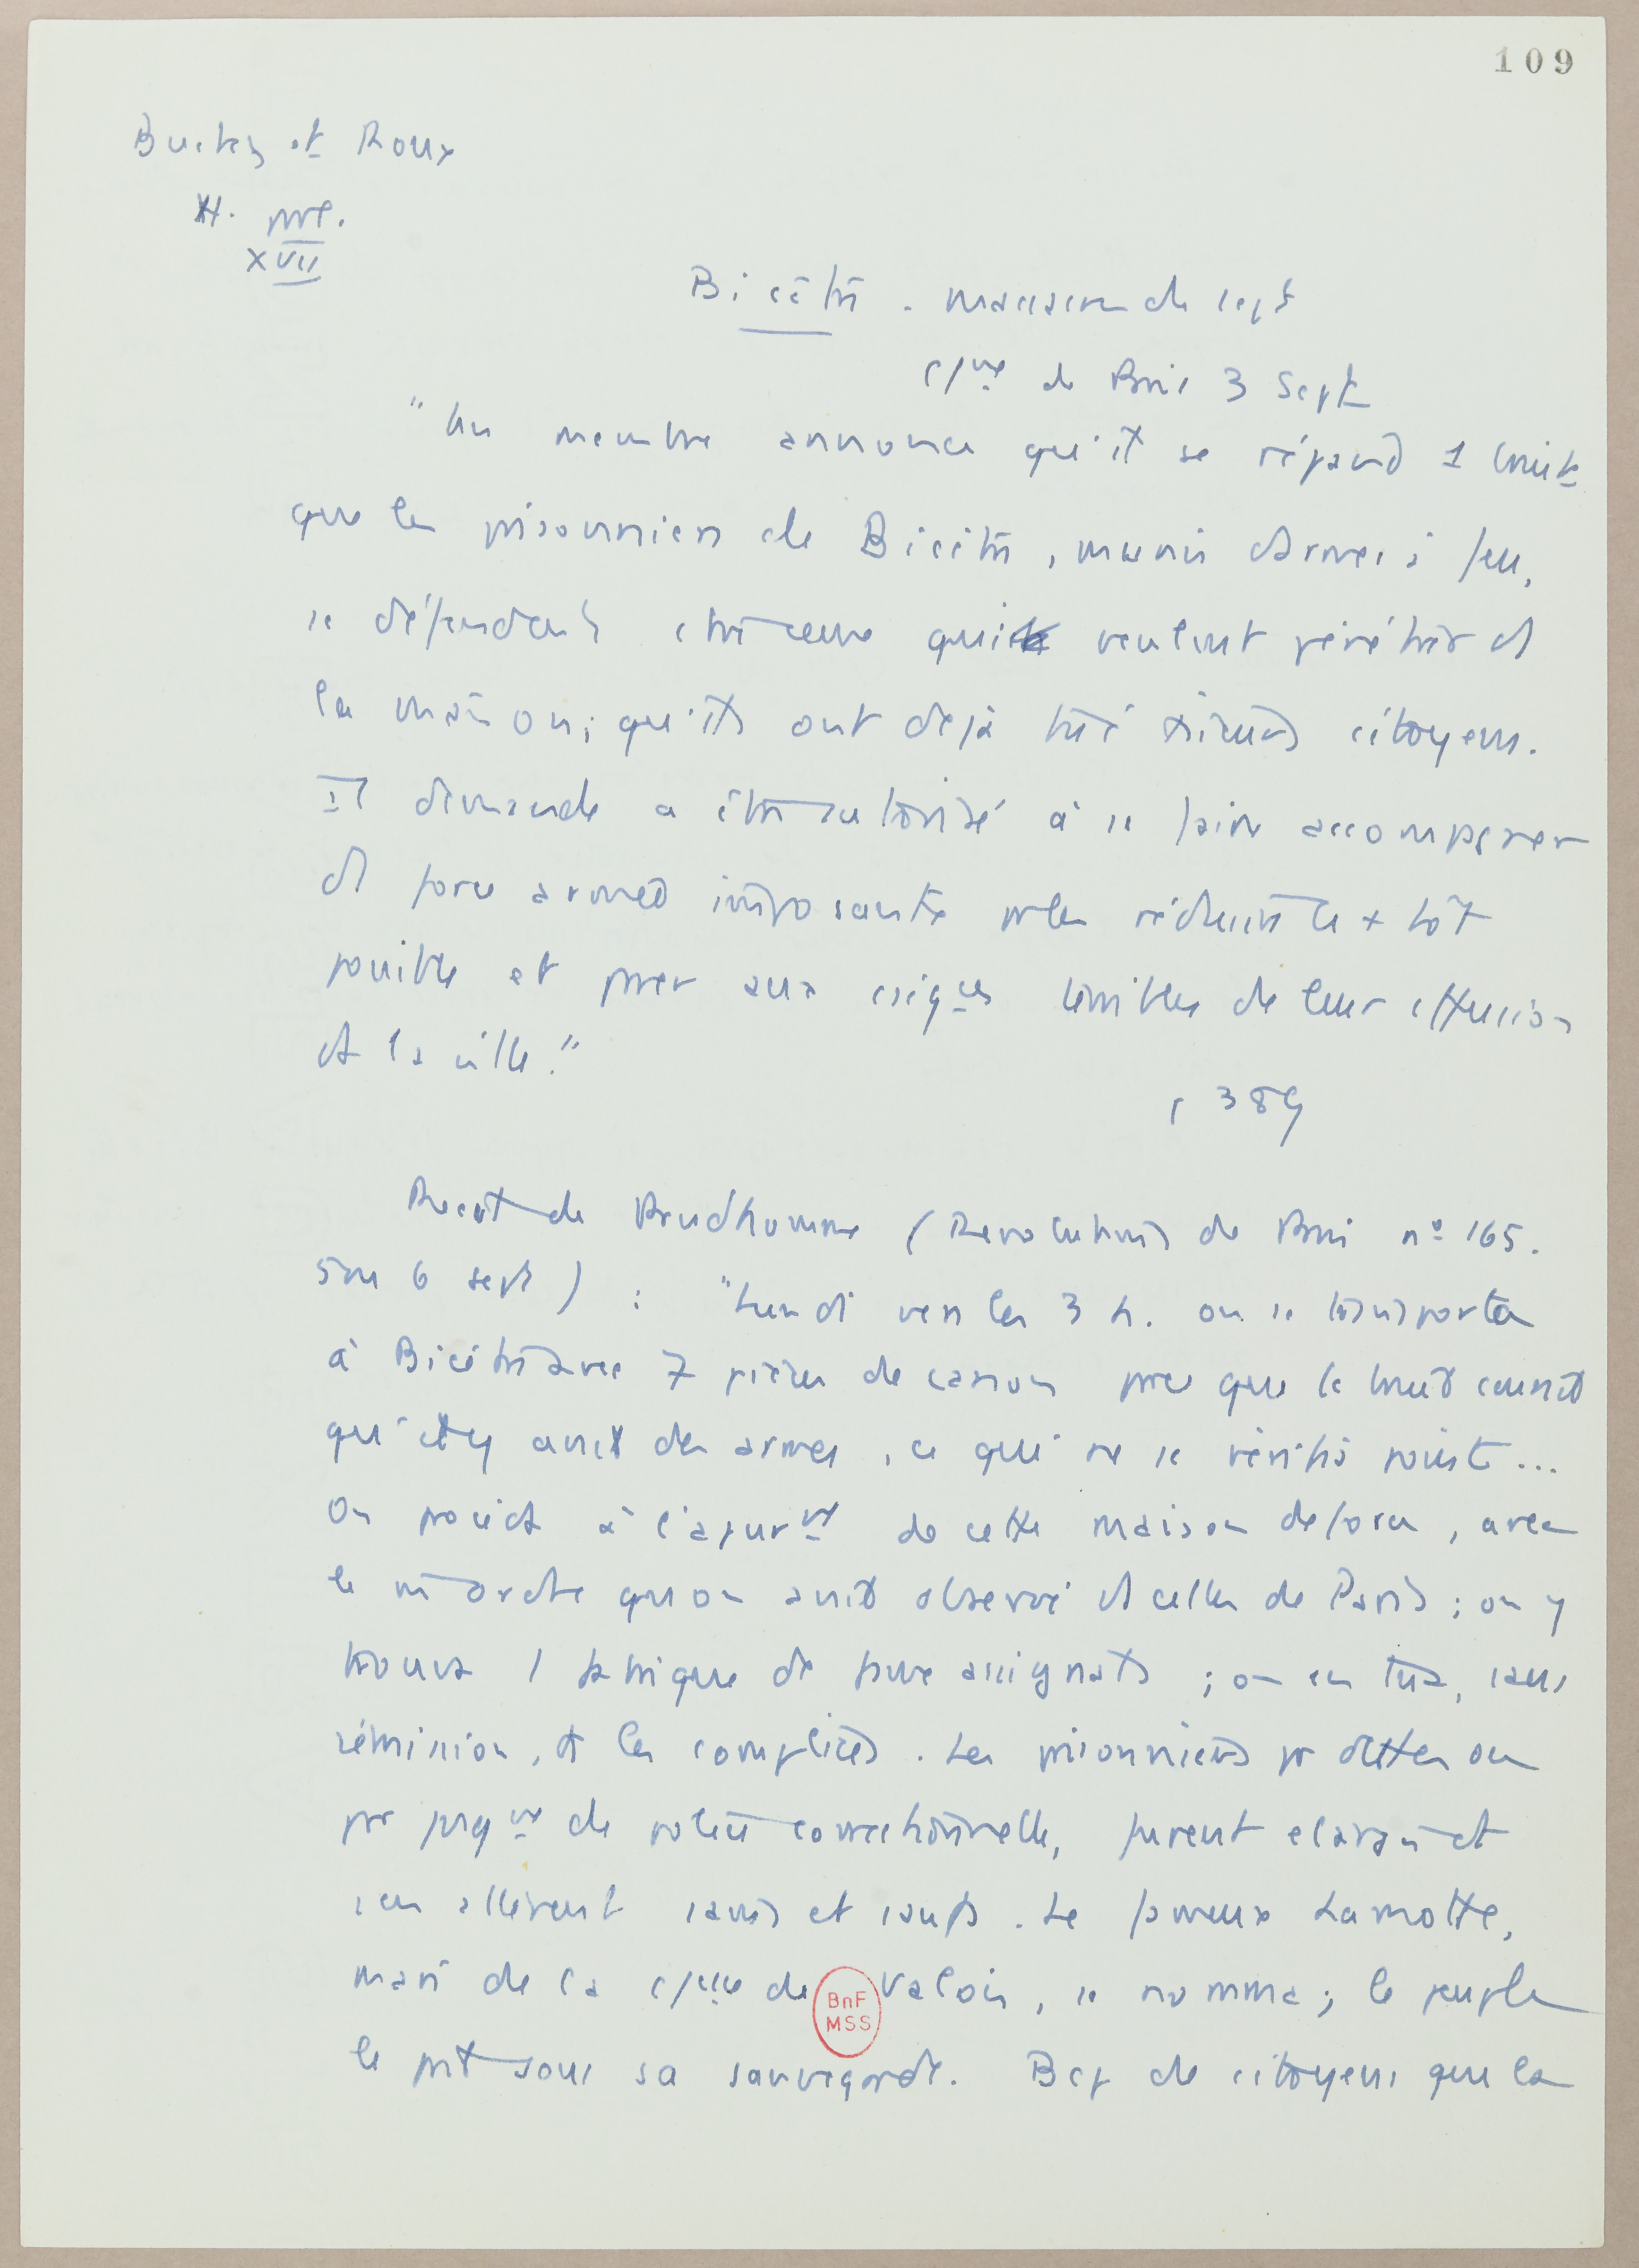 109
Buchez et Roux
H. parl.
XVII
Bicêtre. Massacre de sept
Cne de Paris 3 Sept
"Un membre annonce qu'il se répand 1 bruit
que les prisonniers de Bicêtre, munis d'armes à feu,
se défendent contre ceux qui veulent pénétrer ds
la maison; qu'ils ont déjà tué citoyens.
Il demande a être autorisé à se faire accompagner
d force armée imposante pr les réduire le + tôt
possible et parer aux cséqces terribles de leur effusion
ds la ville."
p 389
Recit de Prudhomme (Revolutions de Paris nº 165.
6 sept) : "Lundi vers les 3 h. on se transporta
à Bicêtre avec 7 pièces de canon parce que le bruit courait
qu'il y avait des armes, ce qui ne se vérifia point...
On procéda à l'apurt de cette maison de force, avec
le m ordre qu'on avait observé ds celles de Paris; on y
trouva 1 fabrique de faux assignats; on en tua, sans
rémission, ts les complices. Les prisonniers pr dettes ou
pr jugt de police correctionnelle, furent élargis et
s'en allèrent sains et saufs. Le fameux Lamotte,
mari de la csse de Valois, se nomma; le peuple
le prit sous sa sauvegarde. Bcp de citoyens que la
BnF
MSS